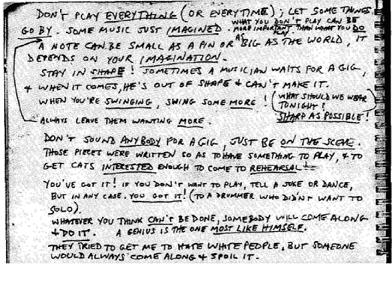 DON'T PLAY EVERYTHING (OR EVERYTIME); LET SOME THINGS
GO BY. SOME MUSIC JUST IMAGINED. WHAT YOU DON'T PLAY CAN BE
MORE IMPORTANT THAN WHAT YOU DO
A NOTE CAN BE SMALL AS A PIN OR AS BIG AS THE WORLD, IT
DEPENDS ON YOUR IMAGINATION.
STAY IN SHAPE! SOMETIMES A MUSICIAN WAITS FOR A GIG
& WHEN IT COMES, HE'S OUT OF SHAPE & CAN'T MAKE IT.
WHEN YOU'RE SWINGING, SWING SOME MORE!
(WHAT SHOULD WE WEAR
TONIGHT?
SHARP AS POSSIBLE!
ALWAYS LEAVE THEM WANTING MORE.
DON'T SOUND ANYBODY FOR A GIG, JUST BE ON THE SCENE.
THOSE PIECES WERE WRITTEN SO AS TO HAVE SOMETHING TO PLAY, & TO
GET CATS INTERESTED ENOUGH TO COME TO REHEARSAL!
YOU'VE GOT IT! IF YOU DON'T WANT TO PLAY, TELL A JOKE OR DANCE,
BUT IN ANY CASE, YOU GOT IT! (TO A DRUMMER WHO DIDN'T WANT TO
SOLO).
WHATEVER YOU THINK CAN'T BE DONE, SOMEBODY WILL COME ALONG
& DO IT. A GENIUS IS THE ONE MOST LIKE HIMSELF.
THEY TRIED TO GET ME TO HATE WHITE PEOPLE, BUT SOMEONE
WOULD ALWAYS COME ALONG & SPOIL IT.